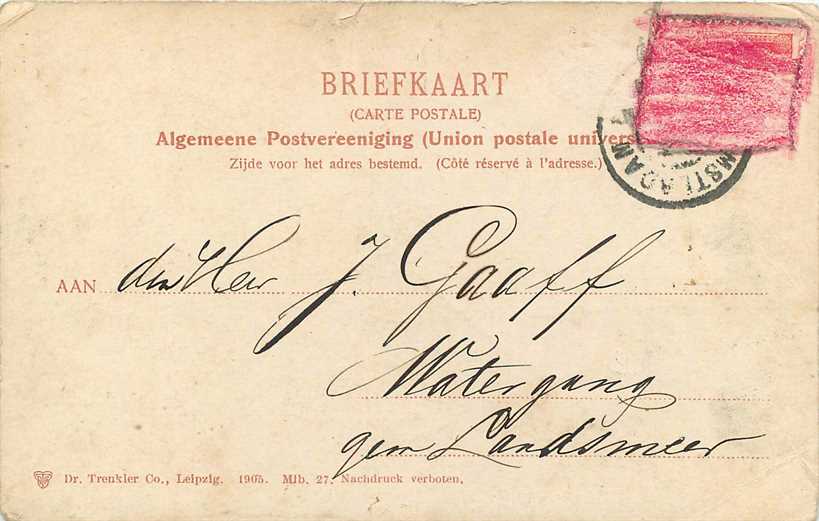 BRIEFKAART
(CARTE POSTALE)
Algemeene Postvereeniging (Union postale univers
Zijde voor het adres bestemd. (Côté réservé à l'adresse.)
AMSTERDAM
AAN den Heer J. Gaaff
Watergang
gem Landsmeer
Dr. Trenkler Co., Leipzig. 1905. Mlb. 27. Nachdruck verboten.